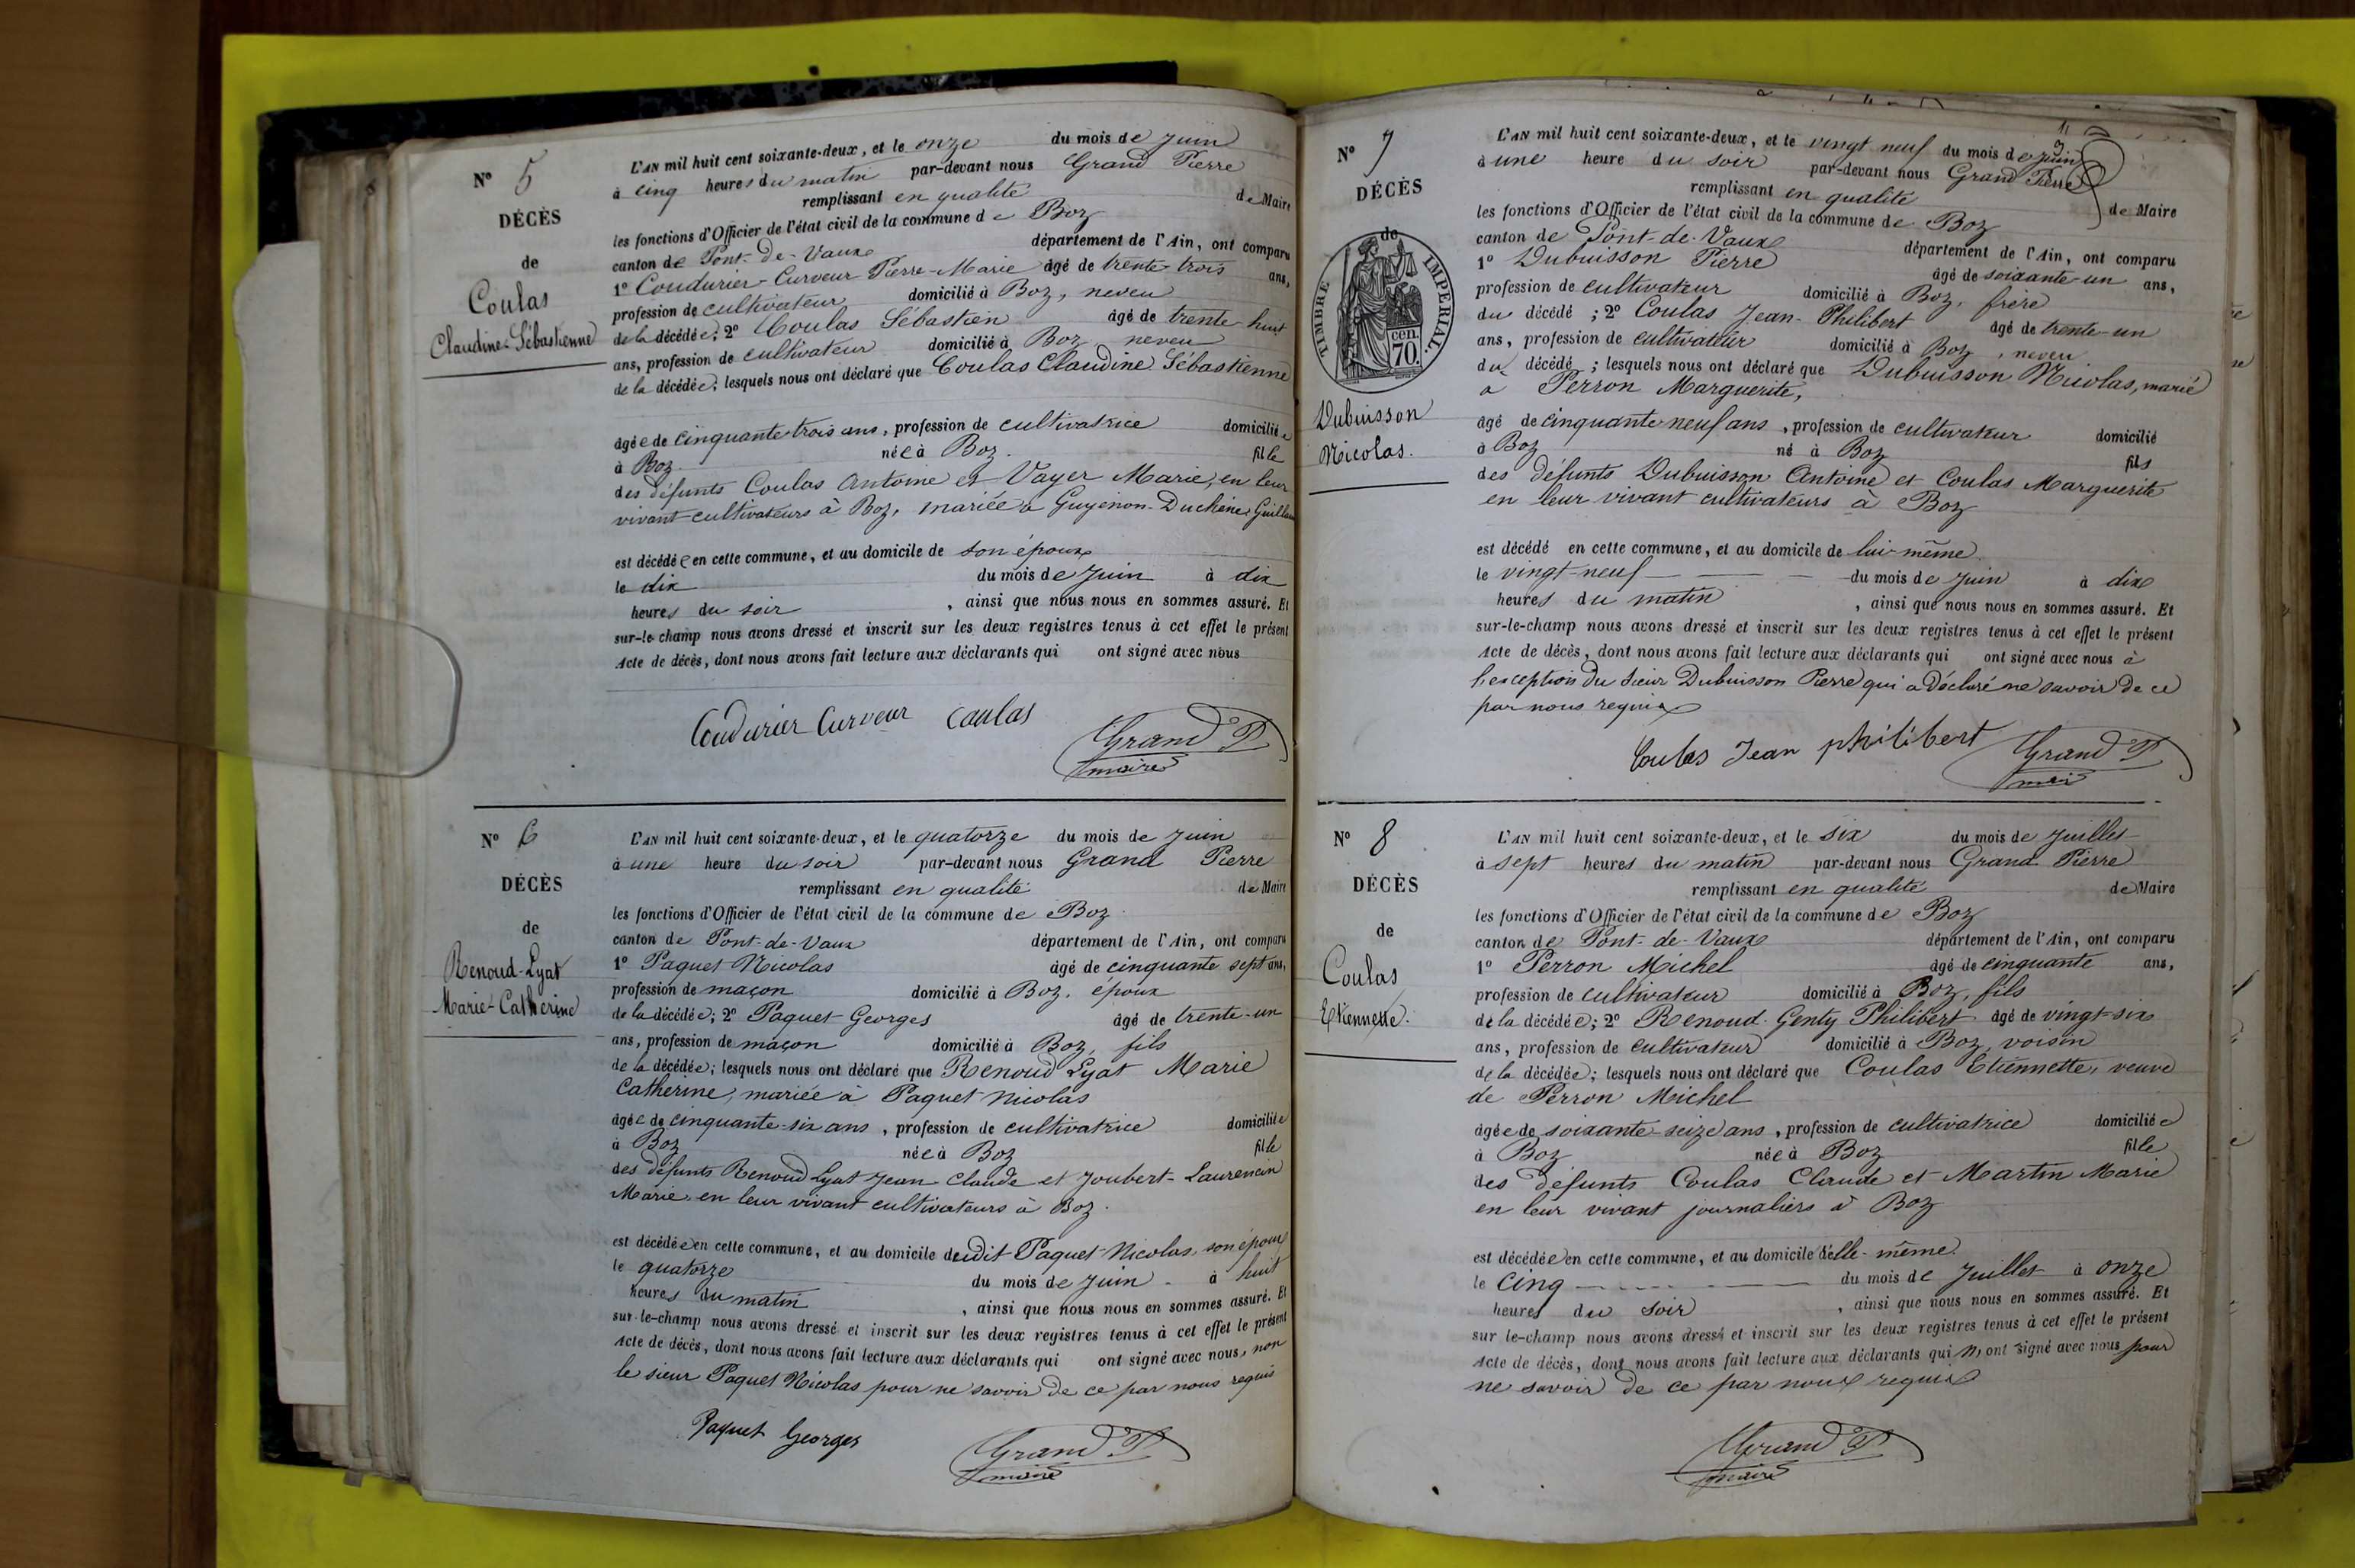 N° 5
DÉCÈS
de
Coulas
Claudine-Sébastienne
L'AN mil huit cent soixante-deux, et le onze du mois de Juin
à cinq heures du matin par-devant nous Grand Pierre
remplissant en qualité de Maire
les fonctions d'Officier de l'état civil de la commune de Boz
canton de Pont-de-Vaux département de l'Ain, ont comparu
1° Coudurier-Curveur Pierre-Marie âgé de trente trois ans,
profession de cultivateur domicilié à Boz, neveu
de la décédée; 2° Coulas Sébastien âgé de trente huit
ans, profession de cultivateur domicilié à Boz neveu
de la décédée; lesquels nous ont déclaré que Coulas Claudine Sébastienne
âgée de cinquante trois ans, profession de cultivatrice domiciliée
à Boz née à Boz. fille
des défunts Coulas Antoine et Vayer Marie, en leur
vivant cultivateurs à Boz, mariée à Guyenon-Duchêne
est décédée en cette commune, et au domicile de son époux
le dix du mois de Juin à dix
heures du soir, ainsi que nous nous en sommes assuré. Et
sur-le-champ nous avons dressé et inscrit sur les deux registres tenus à cet effet le présent
Acte de décès, dont nous avons fait lecture aux déclarants qui ont signé avec nous
Coudurier Curveur Coulas Grand P
maire
N° 6
DÉCÈS
de
Renoud-Lyat
Marie-Catherine
L'AN mil huit cent soixante-deux, et le quatorze du mois de Juin
à une heure du soir par-devant nous Grand Pierre
remplissant en qualité de Maire
les fonctions d'Officier de l'état civil de la commune de Boz
canton de Pont-de-Vaux département de l'Ain, ont comparu
1° Paquet Nicolas âgé de cinquante sept ans,
profession de maçon domicilié à Boz, époux
de la décédée; 2° Paquet Georges âgé de trente-un
ans, profession de maçon domicilié à Boz, fils
de la décédée; lesquels nous ont déclaré que Renoud Lyat Marie
Catherine, mariée à Paquet Nicolas
âgée de cinquante-six ans, profession de cultivatrice domiciliée
à Boz née à Boz fille
des défunts Renoud Lyat Jean Claude et Joubert-Laurencin
Marie, en leur vivant cultivateurs à Boz.
est décédée en cette commune, et au domicile dudit Paquet Nicolas, son époux
le quatorze du mois de Juin à huit
heures du matin, ainsi que nous nous en sommes assuré. Et
sur-le-champ nous avons dressé et inscrit sur les deux registres tenus à cet effet le présent
Acte de décès, dont nous avons fait lecture aux déclarants qui ont signé avec nous, non
le sieur Paquet Nicolas pour ne savoir de ce par nous requis
Paquet Georges Grand P
maire
N° 7
DÉCÈS
de
TIMBRE IMPERIAL.
cen.
70.
Dubuisson
Nicolas.
L'AN mil huit cent soixante-deux, et le vingt neuf du mois de Juin
à une heure du soir par-devant nous Grand Pierre
remplissant en qualité de Maire
les fonctions d'Officier de l'état civil de la commune de Boz
canton de Pont-de-Vaux département de l'Ain, ont comparu
1° Dubuisson Pierre âgé de soixante-un ans,
profession de cultivateur domicilié à Boz, frère
du décédé; 2° Coulas Jean-Philibert âgé de trente-un
ans, profession de cultivateur domicilié à Boz, neveu
du décédé; lesquels nous ont déclaré que Dubuisson Nicolas, marié
à Perron Marguerite,
âgé de cinquante neuf ans, profession de cultivateur domicilié
à Boz né à Boz fils
des défunts Dubuisson Antoine et Coulas Marguerite
en leur vivant cultivateurs à Boz
est décédé en cette commune, et au domicile de lui-même
le vingt-neuf du mois de Juin à dix
heures du matin, ainsi que nous nous en sommes assuré. Et
sur-le-champ nous avons dressé et inscrit sur les deux registres tenus à cet effet le présent
Acte de décès, dont nous avons fait lecture aux déclarants qui ont signé avec nous à
l'exception du sieur Dubuisson Pierre qui a déclaré ne savoir de ce
par nous requis
Coulas Jean philibert Grand P
N° 8
DÉCÈS
de
Coulas
Etiennette.
L'AN mil huit cent soixante-deux, et le six du mois de Juillet
à sept heures du matin par-devant nous Grand Pierre
remplissant en qualité de Maire
les fonctions d'Officier de l'état civil de la commune de Boz
canton de Pont-de-Vaux département de l'Ain, ont comparu
1° Perron Michel âgé de cinquante ans,
profession de cultivateur domicilié à Boz, fils
de la décédée; 2° Renoud-Genty Philibert âgé de vingt-six
ans, profession de cultivateur domicilié à Boz, voisin
de la décédée; lesquels nous ont déclaré que Coulas Etiennette, veuve
de Perron Michel
âgée de soixante-seize ans, profession de cultivatrice domiciliée
à Boz née à Boz fille
des défunts Coulas Claude et Martin Marie
en leur vivant journaliers à Boz
est décédée en cette commune, et au domicile d'elle-même
le cinq du mois de Juillet à onze
heures du soir, ainsi que nous nous en sommes assuré. Et
sur le-champ nous avons dressé et inscrit sur les deux registres tenus à cet effet le présent
Acte de décès, dont nous avons fait lecture aux déclarants qui n'ont signé avec nous pour
ne savoir de ce par nous requis
Grand P
maire